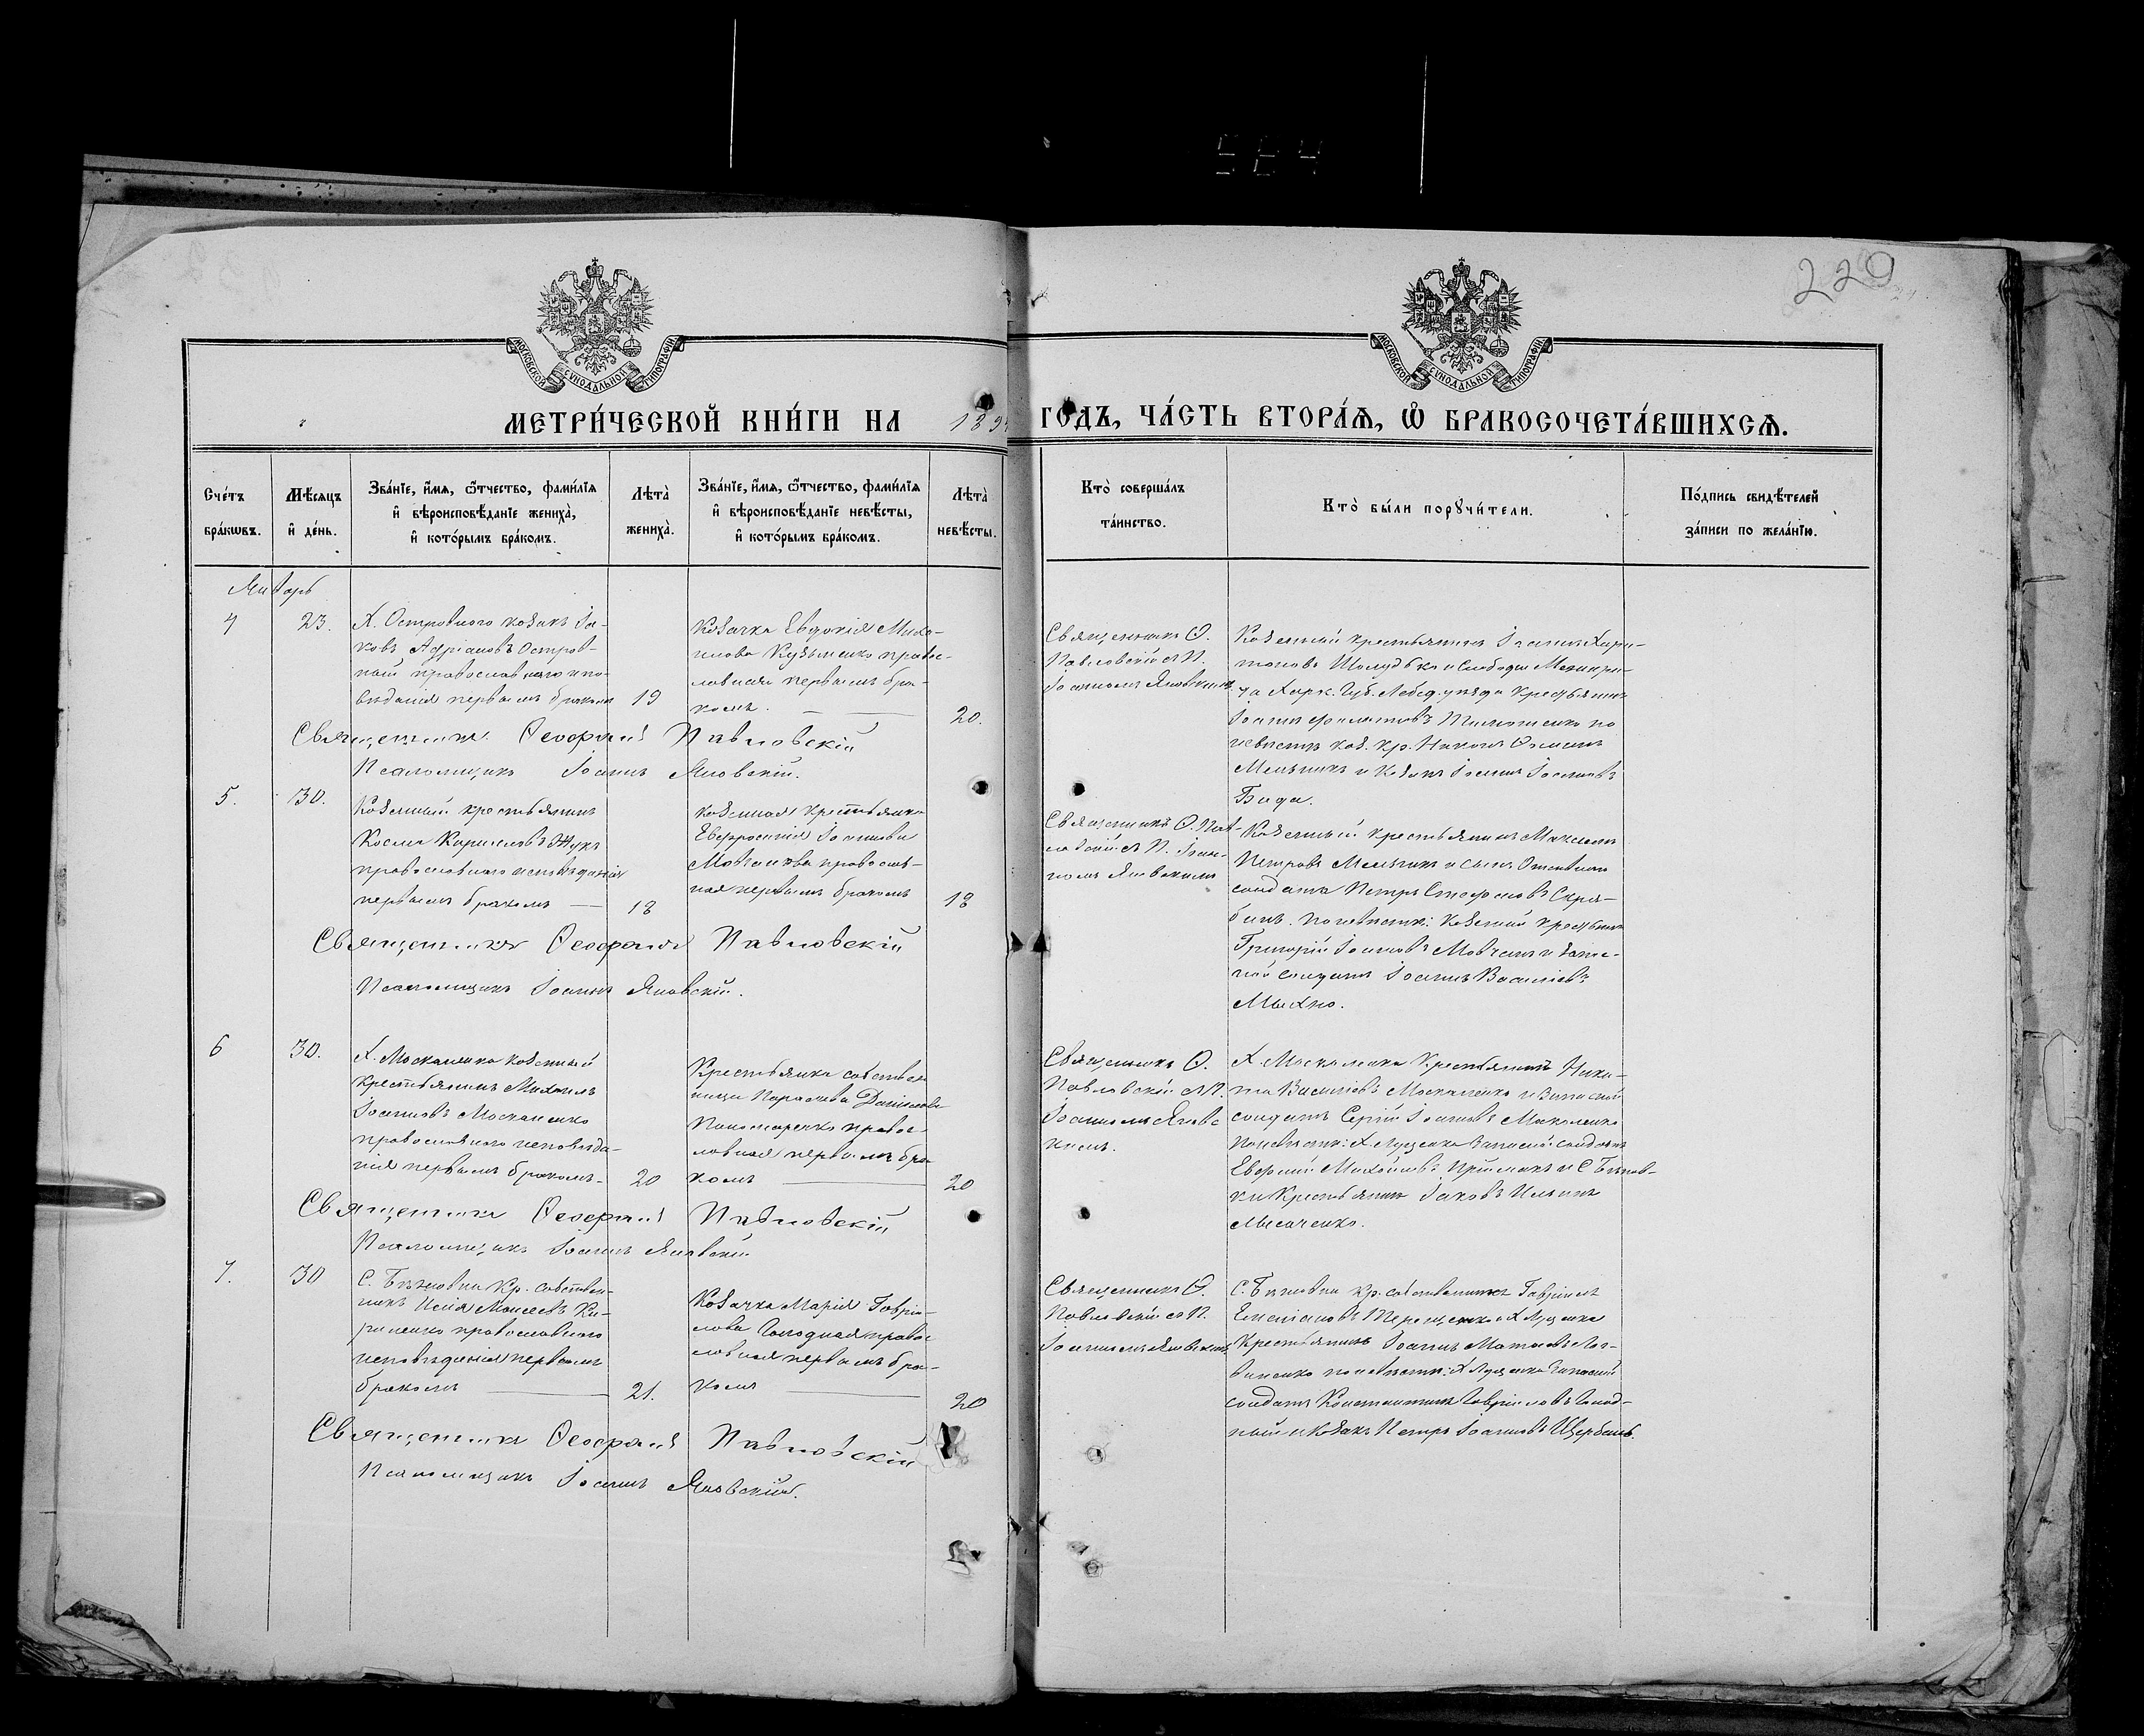 220
МОСКОВСКОЙ СѴНОДАЛЬНОЙ ТИПОГРАФІИ
МОСКОВСКОЙ СѴНОДАЛЬНОЙ ТИПОГРАФІИ
МЕТРИ́ЧЕСКОЙ КНИ́ГИ НА 189
ГОДЪ, ЧА́СТЬ ВТОРА́Ѧ, Ѽ БРАКОСОЧЕТА́ВШИХСѦ.
Сче́тъ бра́кѡвъ.
Мѣ́сяцъ и҆ де́нь.
Зва́нїе, и҆́мѧ, ѻ҆́тчество, фами́лїѧ
и҆ вѣроисповѣ́данїе жениха̀,
и҆ кото́рымъ бра́комъ.
Лѣта̀ жениха̀.
Зва́нїе, и҆́мѧ, ѻ҆́тчество, фами́лїѧ
и҆ вѣроисповѣ́данїе невѣ́сты,
и҆ кото́рымъ бра́комъ.
Лѣта̀ невѣ́сты.
Кто̀ соверша́лъ
та́инство.
Кто̀ бы́ли порꙋчи́тели.
По́дпись свидѣ́телей
за́писи по жела́нїю.
Январь
4
23.
Х. Островного козакъ Іа-
ковъ Адріановъ Остров-
ный православнаго испо-
вѣданія первымъ бракомъ
19
Козачка Евдокія Миха-
илова Кузьменко правос-
лавная первымъ бра-
комъ.
20.
Священникъ Ѳ.
Павловскій съ П.
Іоанномъ Яновскимъ
Казенный крестьянинъ Іоаннъ Хари-
тоновъ и Слободы Межири-
ча Харк. Губ. Лебед. уѣзда крестьянинъ
Іоаннъ Филиповъ Тимошенко по
невѣстѣ каз. кр. Никонъ
Мельникъ и козакъ Іоаннъ Іоанновъ
Бида.
Священникъ Ѳеофанъ Павловскій
Псаломщикъ Іоаннъ Яновскій.
5.
30.
Казенный крестьянинъ
Косма Кириловъ Жукъ
православнаго исповѣданія
первымъ бракомъ
18
казенная крестьянка
Евфросинія Іоаннова
Мовчанова православ-
ная первымъ бракомъ
18
Священникъ Ѳ. Пав-
ловскій съ П. Іоан-
номъ Яновскимъ
Казенный крестьянинъ Максимъ
Петровъ Мельникъ и сынъ Отставнаго
солдата Петръ Стефановъ Скря-
бинъ. по невѣстѣ: Казенный крестьянинъ
Григорій Іоанновъ Мовчанъ и запас-
ной солдатъ Іоаннъ Василіевъ
Махно.
Священникъ Ѳеофанъ Павловскій
Псаломщикъ Іоаннъ Яновскій.
6
30.
Х. Москаленка казенный
крестьянинъ Михаилъ
Іоанновъ Москаленко
православнаго исповѣда-
нія первымъ бракомъ
20
Крестьянка собствен-
ница Параскева Даніилова
Пономаренко правос-
лавная первымъ бра-
комъ
20
Священникъ Ѳ.
Павловскій съ П.
Іоанномъ Яновс-
кимъ.
Х. Москаленка Крестьянинъ Ники-
та Василіевъ Москаленко и Запасный
солдатъ Сергій Іоанновъ Москаленко
По невѣстѣ: Х. Луценка Запасный солдатъ
Евфимій Михайловъ Приймакъ и С. Бѣлов-
ки Крестьянинъ Іаковъ Ильинъ
Лысаченко.
Священникъ Ѳеофанъ Павловскій
Псаломщикъ Іоаннъ Яновскій
7.
30
Кр. собствен-
никъ Илія Моисеевъ Ки-
риленко православнаго
исповѣданія первымъ
бракомъ
21.
Козачка Марія Гаврі-
лова Голодная правос-
лавная первымъ бра-
комъ
20
Священникъ Ѳ.
Павловскій съ П.
Іоанномъ Яновскимъ
кр. собственникъ Гавріилъ
Емеліановъ Терещенко и Х. Луценка
Крестьянинъ Іоаннъ Матѳіевъ Лог-
виненко по невѣстѣ: Х. Луценка Запасный
солдатъ Константинъ Гавріиловъ Голод-
ный и козакъ Петръ Іоанновъ Щербань.
Священникъ Ѳеофанъ Павловскій
Псаломщикъ Іоаннъ Яновскій.